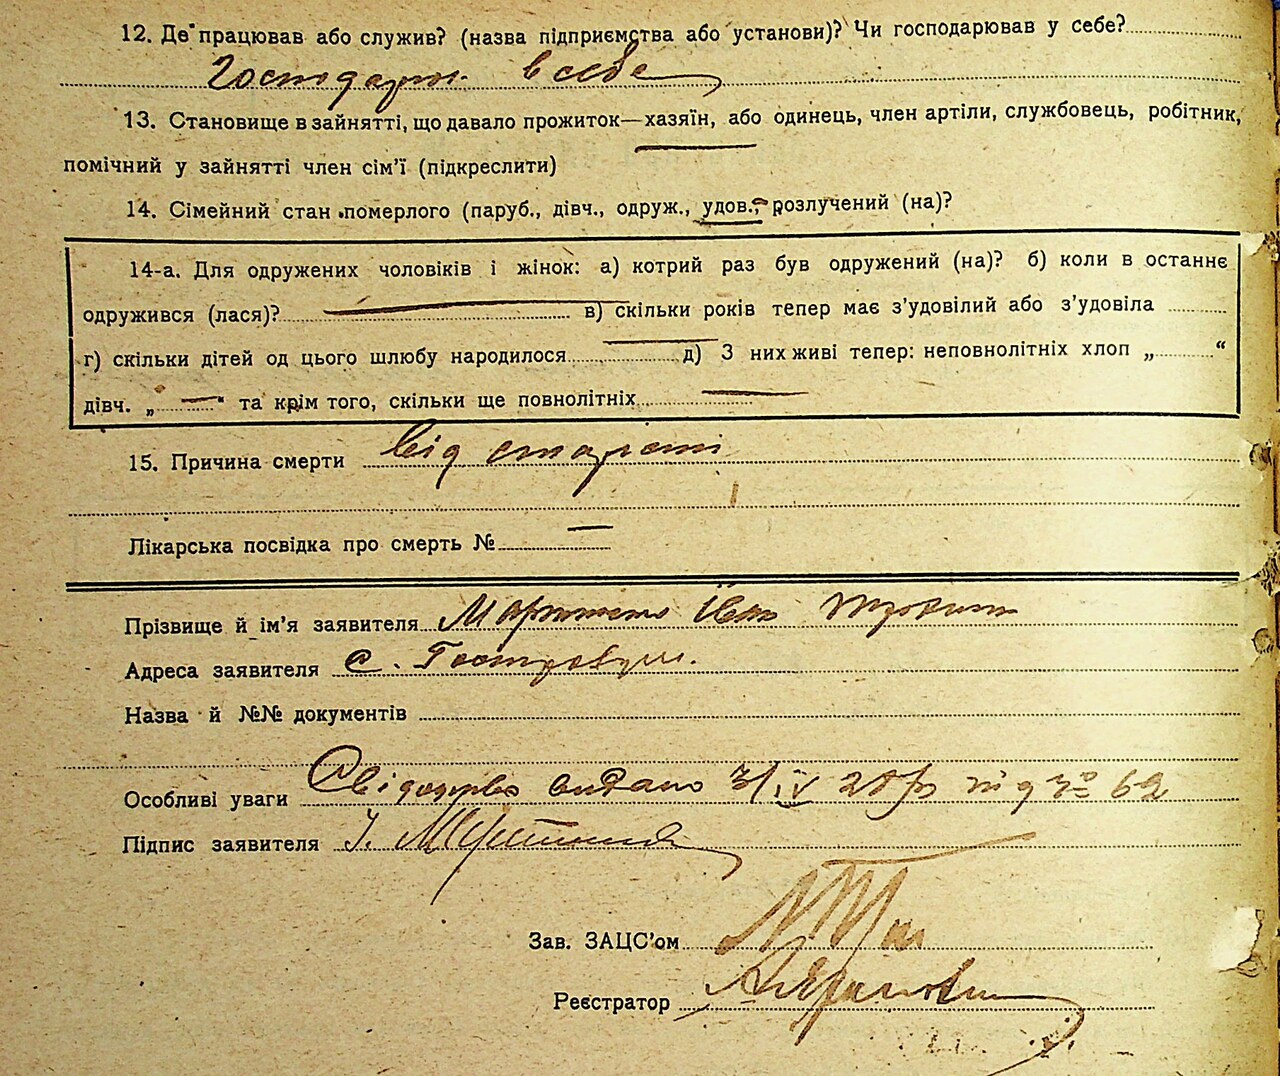 12. Де працював або служив? (назва підприємства або установи)? Чи господарював у себе?
Господарю. в себе
13. Становище в зайнятті, що давало прожиток—хазяїн, або одинець, член артіли, службовець, робітник,
помічний у зайнятті член сім'ї (підкреслити)
14. Сімейний стан померлого (паруб., дівч., одруж., удов., розлучений (на)?
14-а. Для одружених чоловіків і жінок: а) котрий раз був одружений (на)? б) коли в останнє
одружився (лася)? — в) скільки років тепер має з'удовілий або з'удовіла
г) скільки дітей од цього шлюбу народилося — д) З них живі тепер: неповнолітніх хлоп „ “
дівч. „ — “ та крім того, скільки ще повнолітніх —
15. Причина смерти від старости
Лікарська посвідка про смерть № —
Прізвище й ім'я заявителя Іван
Адреса заявителя с.
Назва й №№ документів
Особливі уваги видано 3/IV під № 62
Підпис заявителя І.
Зав. ЗАЦС'ом
Реєстратор